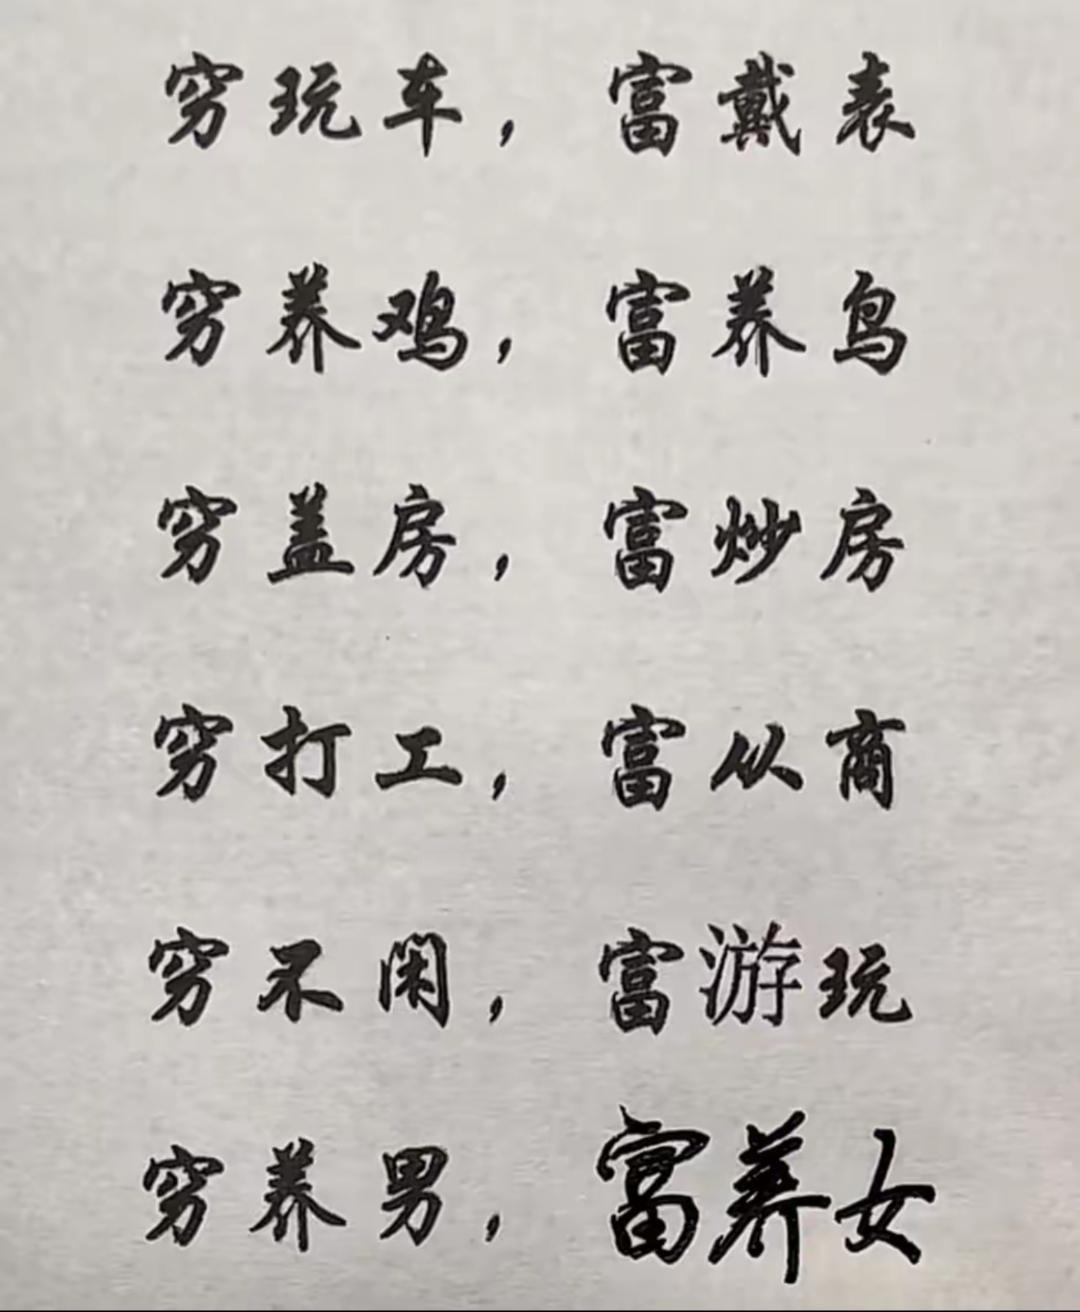 穷玩车，富戴表
穷养鸡，富养鸟
穷盖房，富炒房
穷打工，富从商
穷不闲，富游玩
穷养男，富养女